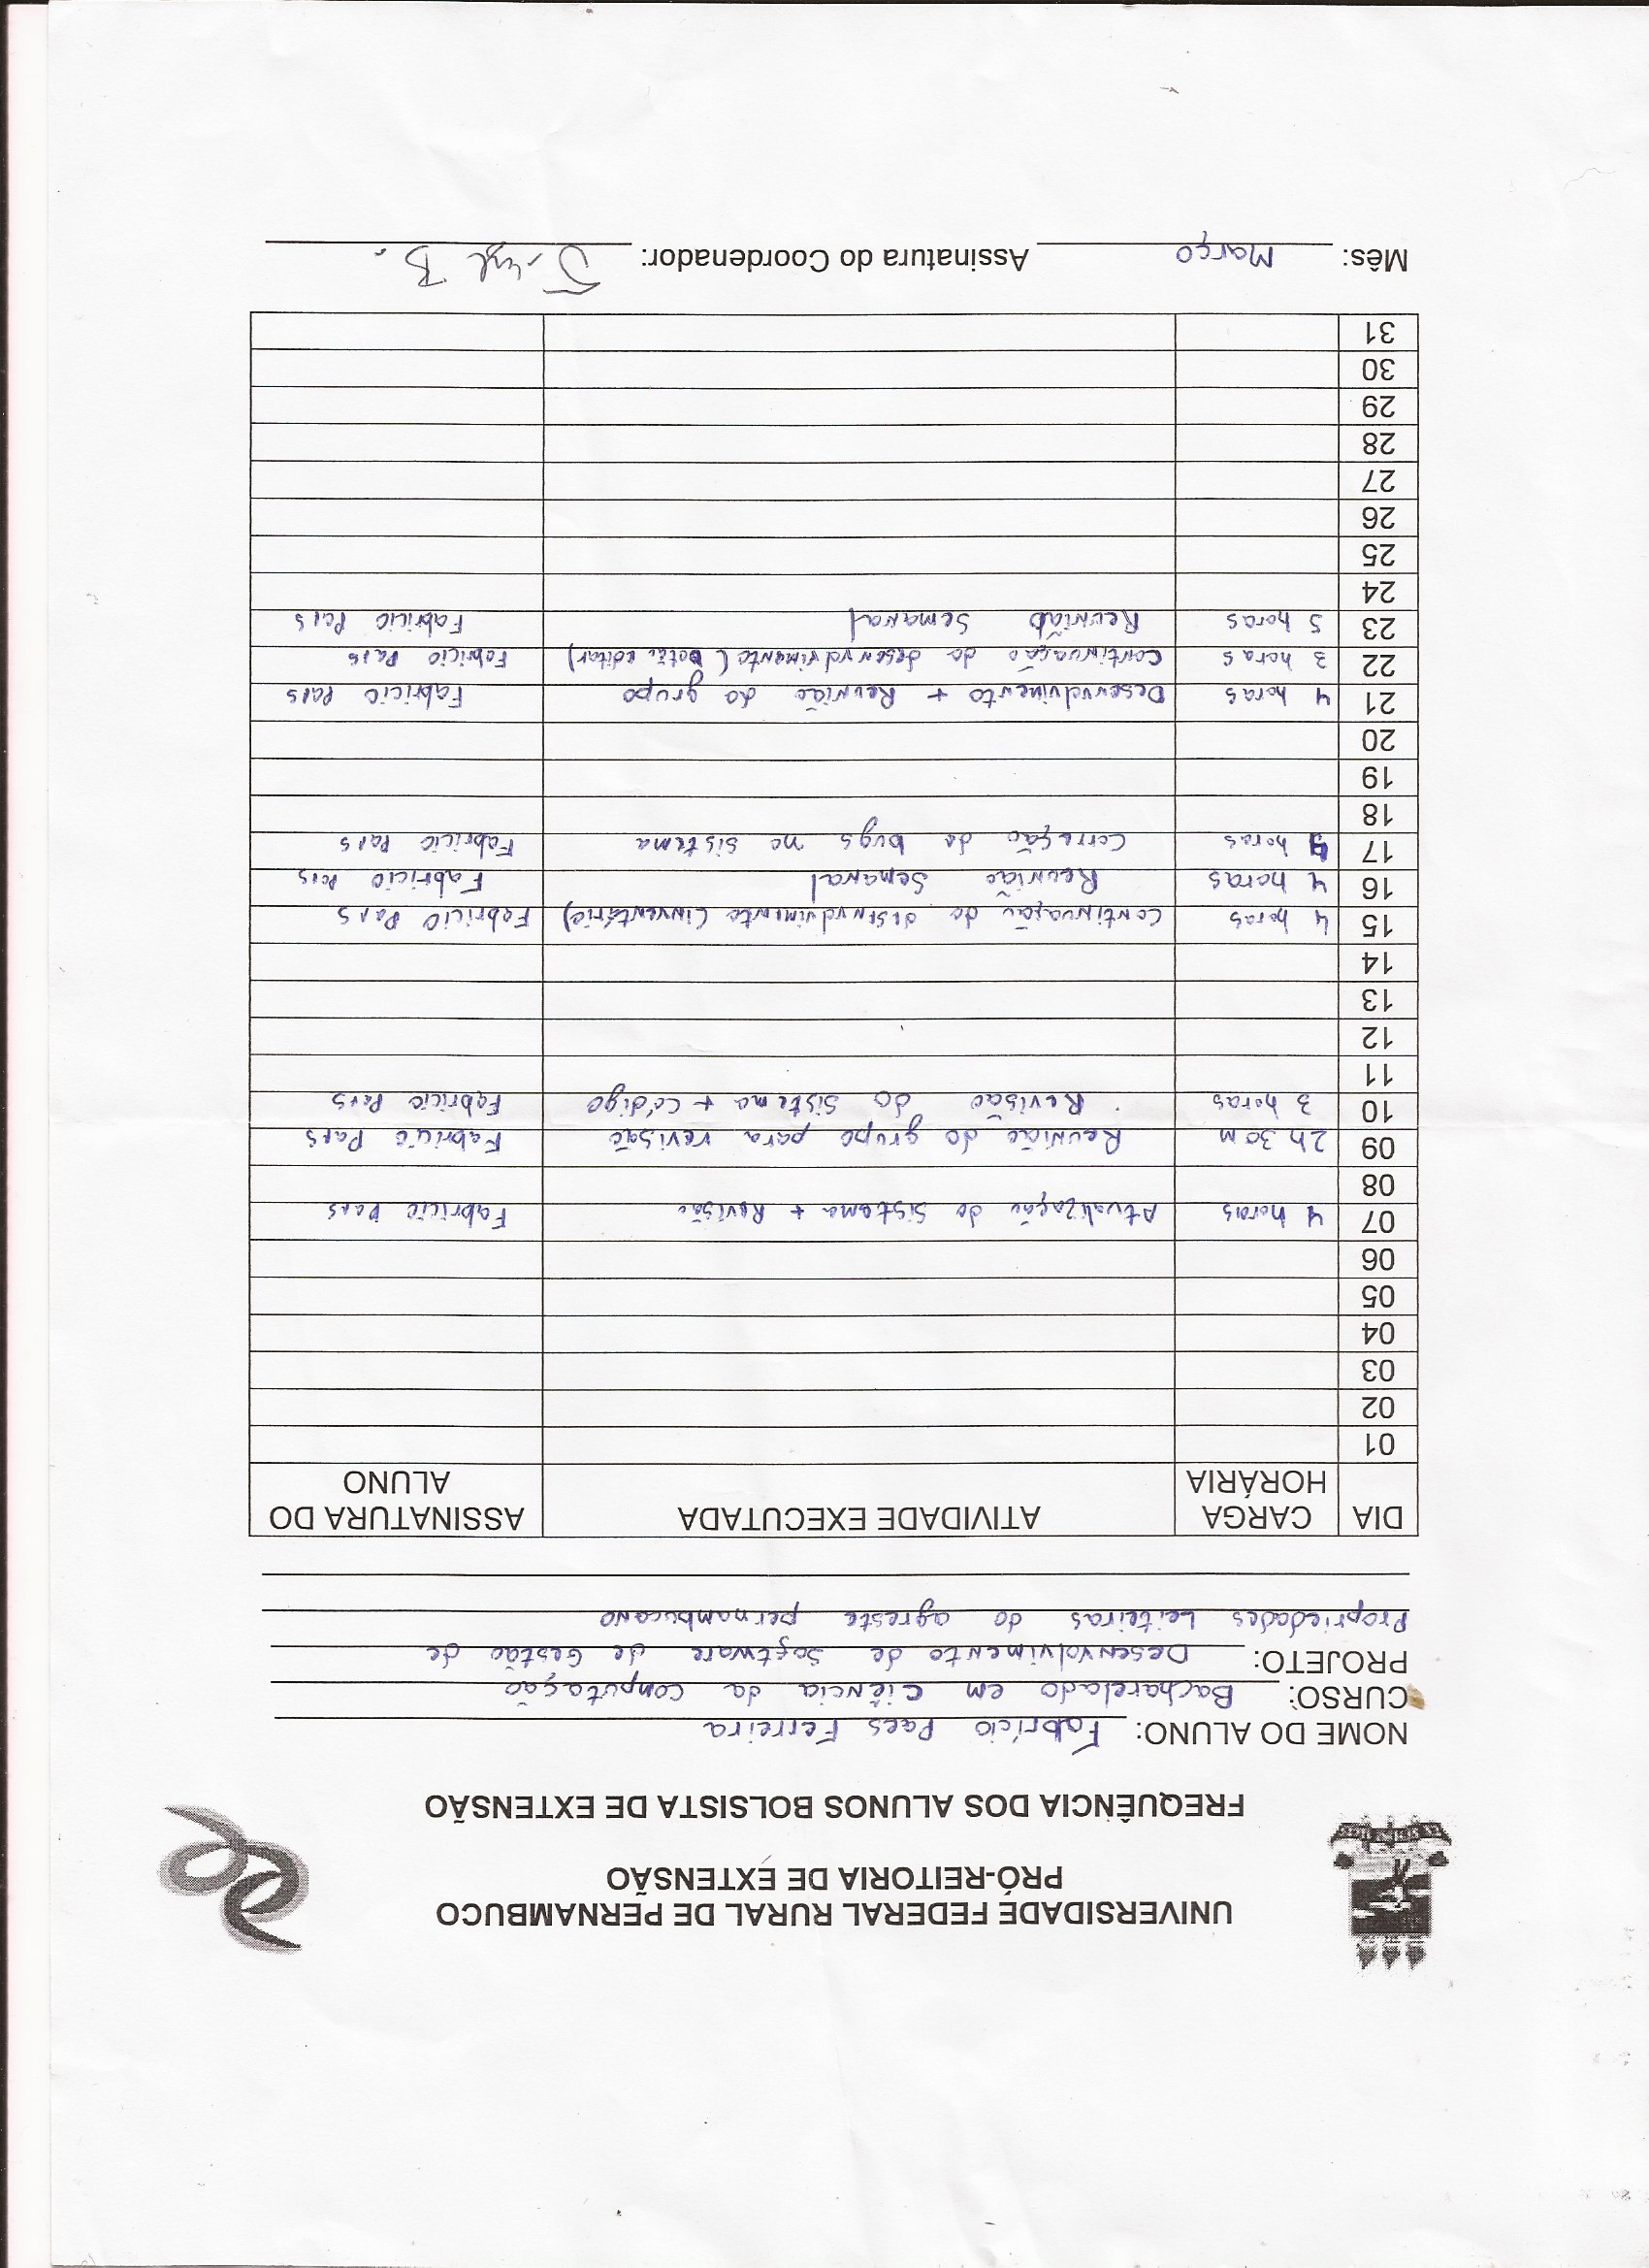 UNIVERSIDADE FEDERAL RURAL DE PERNAMBUCO
PRÓ-REITORIA DE EXTENSÃO
FREQUÊNCIA DOS ALUNOS BOLSISTA DE EXTENSÃO
NOME DO ALUNO: Fabrício Paes Ferreira
CURSO: Bacharelado em Ciência da Computação
PROJETO: Desenvolvimento de Software de Gestão de
Propriedades Leiteiras do agreste pernambucano
DIA CARGA HORÁRIA ATIVIDADE EXECUTADA ASSINATURA DO ALUNO
01
02
03
04
05
06
07 4 horas Atualização do Sistema + Revisão Fabricio Paes
08
09 2h 30m Reunião do grupo para revisão Fabricio Paes
10 3 horas Revisão do Sistema + Código Fabricio Paes
11
12
13
14
15 4 horas Continuação do desenvolvimento (inventário) Fabricio Paes
16 4 horas Reunião Semanal Fabricio Paes
17 horas Correção de bugs no sistema Fabricio Paes
18
19
20
21 4 horas Desenvolvimento + Reunião do grupo Fabricio Paes
22 3 horas Continuação do desenvolvimento (botão editar) Fabricio Paes
23 5 horas Reunião Semanal Fabricio Paes
24
25
26
27
28
29
30
31
Mês: Março Assinatura do Coordenador: B.